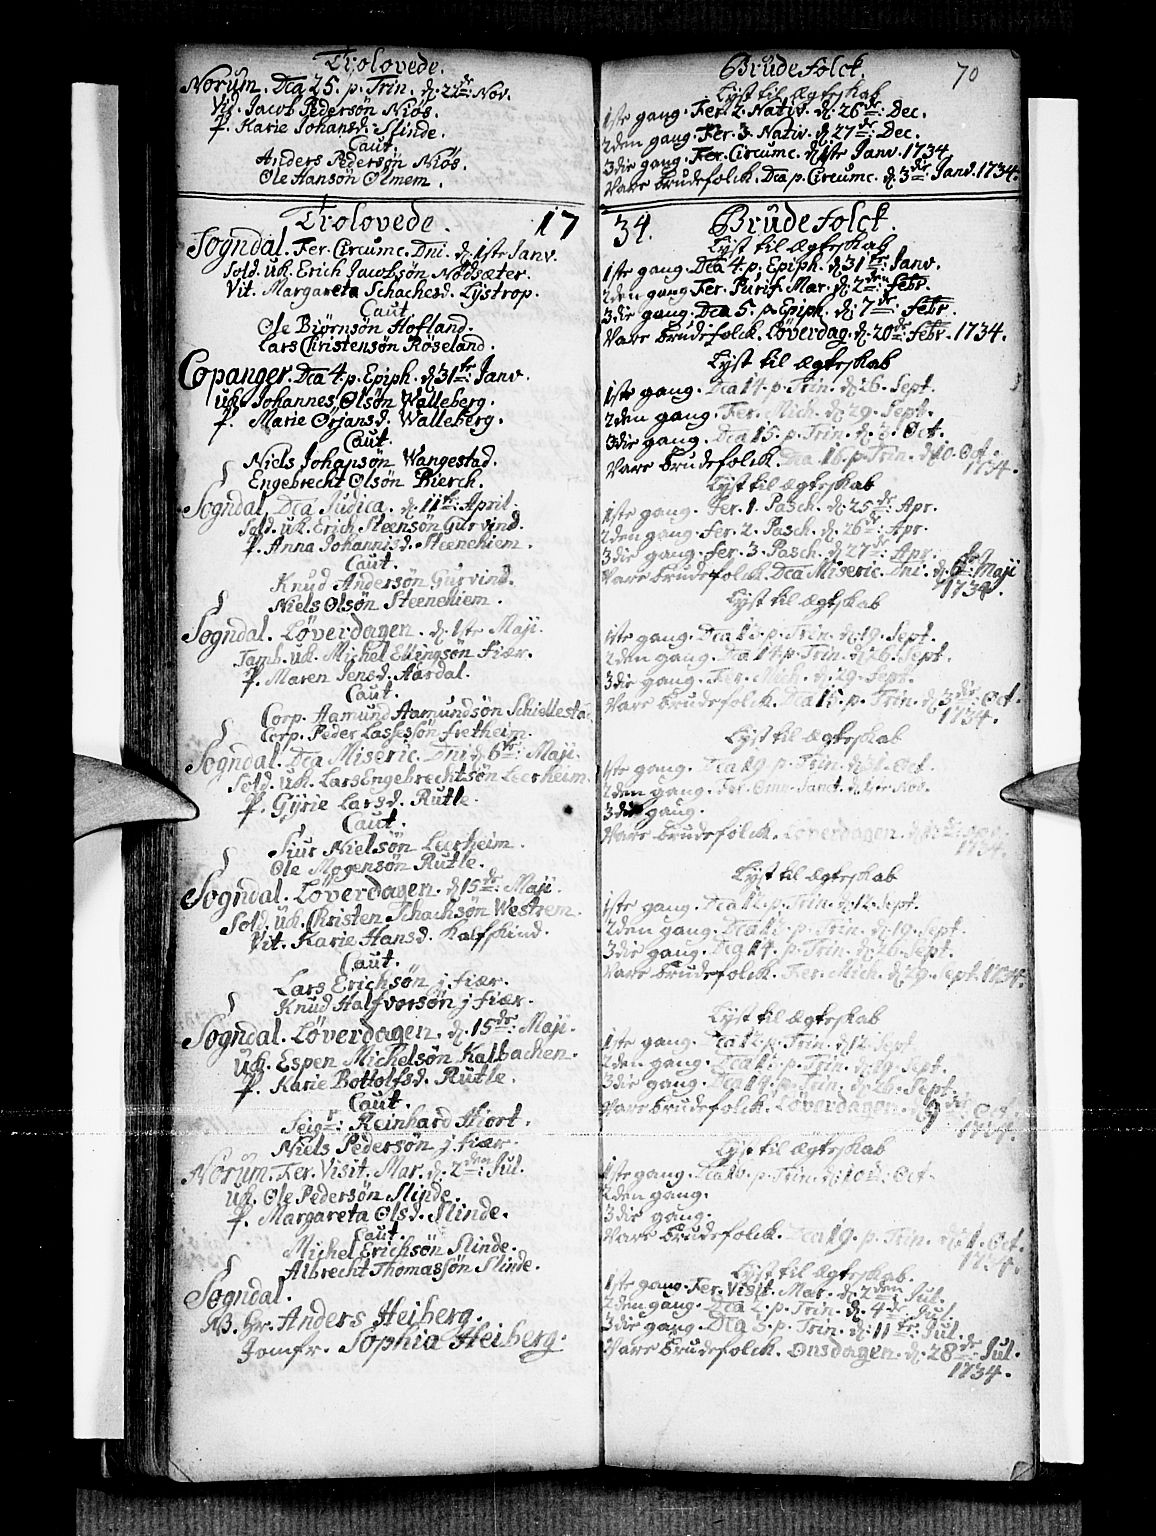 Trolovede.
Norum. Dca 25. p. Trin. d. 22de Nov.
Vid. Jacob Pedersön Niös.
P. Karie Johansd: Slinde.
Caut.
Anders Pedersön Niös.
Ole Hansön Olmem.
Trolovede. 17
Sogndal. Fer. Circumc. Dni. d. 1ste Janv.
Sold. uk. Erich Jacobsön
Vit. Margareta Schachesd. Lystrop.
Caut
Ole Biörnsön Hofland.
Lars Christensön Röseland.
Copanger. Dca 4. p. Epiph. d. 31te Janv.
uk. Johannes Olsön Walleberg.
P. Marie Örjansd. Walleberg.
Caut.
Niels Johansön Wangestad.
Engebrecht Olsön Bierch.
Sogndal. Dca Judica. d. 11te April.
Sold. uk. Erich Steensön Gurvind.
P. Anna Johannisd. Steenehiem.
Caut.
Knud Andersön Gurvind.
Niels Olsön Steenehiem.
Sogndal. Löverdagen. d. 1ste Maji.
Tamb. uk. Michel Ellingsön Fiær.
P. Maren Jensd. Aardal.
Caut.
Corp. Aamund Aamundsön Schiellestad
Corp. Peder Lassesön Fretheim.
Sogndal. Dca Miseric. Dni d. 6te Maji.
Sold. uk. Lars Engebrechtsön Leerheim.
P. Gÿrie Larsd. Rutle.
Caut.
Siur Nielsön Leerheim.
Ole Mogensön Rutle.
Sogndal. Löverdagen. d. 15de Maji.
Sold. uk. Christen Schachsön Westrem.
Vit. Karie Hansd. Kalfskind.
Caut.
Lars Erichsön j fiær.
Knud Halfvorsön j fiær.
Sogndal. Löverdagen. d. 15de Maji.
uk. Espen Michelsön Kalbachen.
P. Karie Bottolfsd. Rutle.
Caut.
Seigr: Reinhard Hiort.
Niels Pedersön j fiær.
Norum. Fer. Visit. Mar. d. 2den Jul.
uk. Ole Pedersön Slinde.
P. Margareta Olsd. Slinde.
Caut.
Michel Erichsön Slinde.
Albrecht Thomassön Slinde.
Sogndal.
NB. Hr. Anders Heiberg.
Jomfr. Sophia Heiberg.
70
Brudefolck.
Lyst til Ægteskab
1ste gang. Fer. 2. Nativ. d. 26de Dec.
2den gang. Fer. 3. Nativ. d. 27de Dec.
3die gang. Fer. Circumc. d. 1ste Janv. 1734
Vare brudefolck. Dca p. Circumc. d. 3die Janv. 1734.
34. Brudefolck.
Lyst til Ægteskab
1ste gang. Dca 4. p. Epiph. d. 31te Janv.
2den gang. Fer. Purif. Mar. d. 2den Febr.
3die gang. Dca 5. p. Epiph. d. 7de Febr.
Vare brudefolck. Löverdag. d. 20de Febr. 1734.
Lyst til Ægteskab
1ste gang. Dca 14. p. Trin. d. 26. Sept.
2den gang. Fer. Mich. d. 29. Sept.
3die gang. Dca 15. p. Trin. d. 3. Oct.
Vare brudefolck. Dca 16. p. Trin. d. 10. Oct.
1734.
Lyst til Ægteskab
1ste gang. Fer. 1. Pasch. d. 25de Apr.
2den gang. Fer. 2. Pasch. d. 26de Apr.
3die gang. Fer. 3. Pasch. d. 27de Apr.
Vare brudefolck. Dca Miseric. Dni. d. 6te Maji
1734.
Lyst til Ægteskab
1ste gang. Dca 13. p. Trin. d. 19. Sept.
2den gang. Dca 14. p. Trin. d. 26. Sept.
3die gang. Fer. Mich. d. 29. Sept.
Vare brudefolck. Dca 15. p. Trin. d. 3die Oct.
1734.
Lyst til Ægteskab
1ste gang. Dca 19. p. Trin. d. 31. Oct.
2den gang. Fer. Omn. Sanct. d. 1ste Nov.
3die gang.
Vare brudefolck. Löverdagen.
1734.
Lyst til Ægteskab
1ste gang. Dca 12. p. Trin. d. 12. Sept.
2den gang. Dca 13. p. Trin. d. 19. Sept.
3die gang. Dca 14. p. Trin. d. 26. Sept.
Vare brudefolck. Fer. Mich. d. 29. Sept. 1734.
Lyst til Ægteskab
1ste gang. Dca 12. p. Trin. d. 12. Sept
2den gang. Dca 13. p. Trin. d. 19. Sept.
3die gang. Dca 14. p. Trin. d. 26. Sept.
Vare brudefolck. Löverdagen. Oct.
1734.
Lyst til Ægteskab
1ste gang. p. Trin. Oct.
2den gang.
3die gang.
Vare brudefolck. Dca 19. p. Trin. Oct.
1734.
Lyst til Ægteskab.
1ste gang. Fer. Visit. Mar. d. 2den Jul.
2den gang. Dca 2. p. Trin. d. 4de Jul.
3die gang. Dca 3. p. Trin. d. 11te Jul.
Vare brudefolck. Onsdagen. d. 28de Jul.
1734.